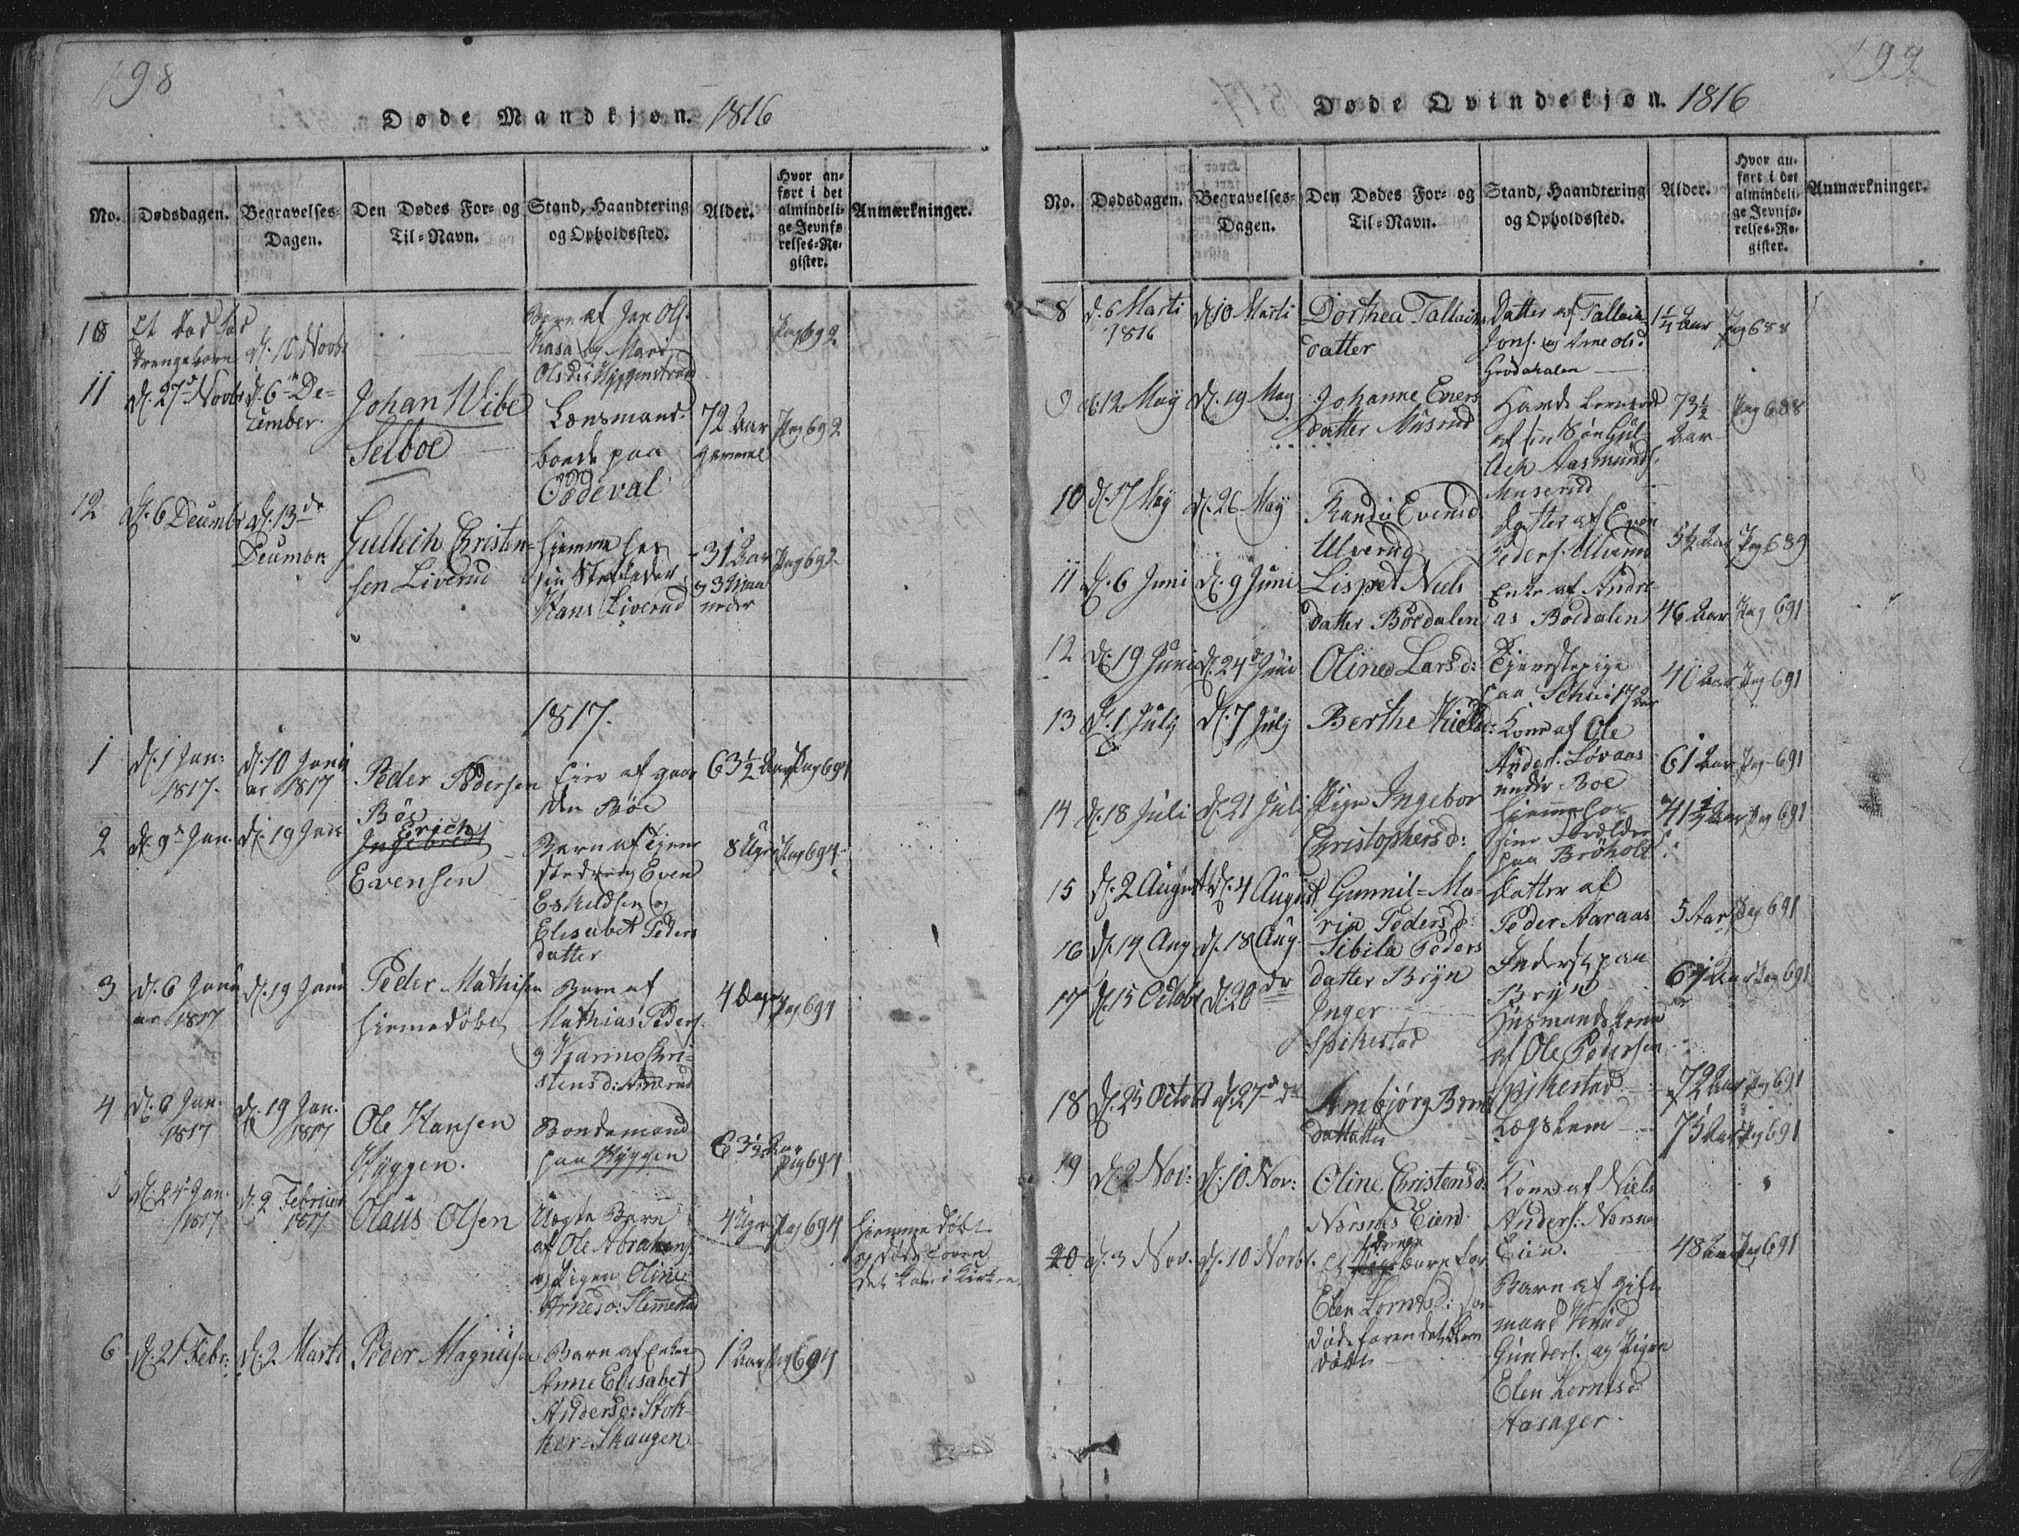 198
Døde Mandkjøn. 1816
No.
Dødsdagen.
Begravelses-
Dagen.
Den Dødes For- og
Til-Navn.
Stand, Haandtering
og Opholdssted.
Alder.
Hvor an-
ført i det
almindeli-
ge Jevnfø-
relses-Re-
gister.
Anmærkninger.
10
et Død fød
Drengebarn
d. 10 Novbr
Barn af Jan Ols.
og Mari
Olsd: Hyggenstrand
Pag 692
11
d. 27d Novbr
d. 6te De-
cember.
Johan Wibe
Selboe
Lænsmand
boede paa
Ødeval
72 Aar
gammel
Pag 692
12
d. 6 Decembr
d. 13de
Decembr.
Gullich Christen-
sen Liverud
hjemme hos
sin Stiffader
Hans Liverud
31 Aar
og 3 Maa
neder
Pag 692
1817.
1
d. 1 Jan:
1817.
d. 10 Janu
ar 1817
Peder Pedersen
Böe
Eier af gaar
den Böe
63½ Aar
Pag 694
2
d. 9d Jan.
d. 19 Jan.
Erich
Ingebredt
Evensen
Barn af tjene
stedreng Even
Eskildsen og
Elisabet Peders
datter
8 Uger
Pag 694
3
d. 6 Janu
ar 1817
d. 19 Janu
Peder Mathisen
hjemmedöbt
Barn af
Mathias Peders.
og Karine Chri-
stensd:
4 Dage
Pag 694
4
d. 8 Jan.
1817
d. 19 Jan.
1817
Ole Hansen
Hyggen.
Bondemand
paa Hyggen
63½ Aar
Pag 694
5
d. 24 Jan.
1817
d. 2 Februar
1817
Olaus Olsen
Uægte Barn
af Ole Abrahams.
og Pigen Oline
Arnesd: Slemmestad
4 Uger
Pag 694
hjemme döbt
og döde foren
det kom i Kirken.
6
d. 21 Febr:
d. 2 Marti
Peder Magnusen
Barn af Enken
Anne Elisabet
Andersd: Stok-
ker-Skaugen
1 Aar
Pag 694
199
Døde Qvindekjøn. 1816
No.
Dødsdagen.
Begravelses-
Dagen.
Den Dødes For- og
Til-Navn.
Stand, Haandtering
og Opholdssted.
Alder.
Hvor an-
ført i det
almindeli-
ge Jevnfø-
relses-Re-
gister.
Anmærkninger.
8
d. 6 Marti
1816
d. 10 Marti
Dorthea Tallaks
datter
Datter af Tallak
Jons. og Arne Ols d
Grødahalen
1¼ Aar
Pag 688
9
d. 12 May
d. 19 May
Johanne Evers
datter Musrud
Havde levnet
af sin Søn Gul-
lich Aasmunds.
Muserud
73½
Aar
Pag 688
10
d. 17 May
d. 26 May
Randi Evensd
Ulverud
Datter af Even
Peders. Ulverud
5½ Aar
Pag 689
11
d. 6 Juni
d. 9 Juni
Lispet Niels
datter Böedalen
Enke af Andre-
as Böedalen
46 Aar
Pag 691
12
d. 19 Juni
d. 24d Juni
Oline Larsd:
Tjenestepige
paa
40 Aar
Pag 691
13
d. 1 July
d. 7 July
Berthe
Kone af Ole
Anders. Lövaas
under Boe
61 Aar
Pag 691
14
d. 18 Juli
d. 21 Juli
Pige Ingebor
Christophersd:
hjemme hos
sine Forældre
paa Bröholt
41½ Aar
Pag 691
15
d. 2 August
d. 4 August
Gunnil-Ma-
ria Pedersd:
Datter af
Peder Aaraas
5 Aar
Pag 691
16
d. 14 Aug
d. 18 Aug.
Sibila Peders
datter Bryn
Inderst paa
Bryn
67 Aar
Pag 691
17
d. 15 Octobr
d. 20 de
Inger
Spikestad
Husmands kone
af Ole Pedersen
Spikestad
72 Aar
Pag 691
18
d. 25 Octobr
d. 27d do
Ambjørg
datter
Lægslem
75 Aar
Pag 691
19
d. 2 Nov:
d. 10 Nov:
Oline Christensd:
Norsnes Eien:
Kone af Niels
Anders: Norsnes
Eien.
48 Aar
Pag 691
20
d. 3 Nov.
d. 10 Novbr.
et Drengebarn for
Elen Lorntsd:
döde foren det blev
döbt
Barn af gift
mand Knud
Gunders. og Pigen
Elen Lorntsd:
Aasager.